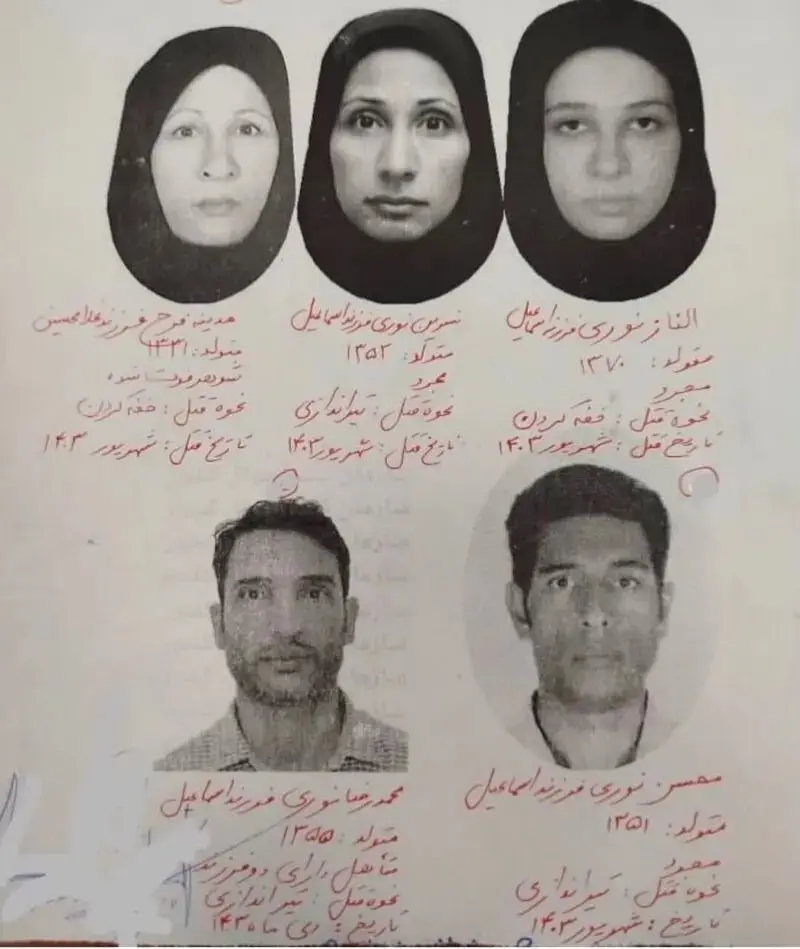 الناز نوری فرزند اسماعیل
متولد: ۱۳۷۰
مجرد
نحوه قتل: خفه کردن
تاریخ قتل: شهریور ۱۴۰۳
نسرین نوری فرزند اسماعیل
متولد: ۱۳۵۲
مجرد
نحوه قتل: تیراندازی
تاریخ قتل: شهریور ۱۴۰۳
مدینه فرح فرزند غلامحسین
متولد: ۱۳۳۱
شوهر فوت شده
نحوه قتل: خفه کردن
تاریخ قتل: شهریور ۱۴۰۳
محسن نوری فرزند اسماعیل
متولد: ۱۳۵۱
مجرد
نحوه قتل: تیراندازی
تاریخ: شهریور ۱۴۰۳
محمدرضا نوری فرزند اسماعیل
متولد: ۱۳۵۵
متأهل دارای دو فرزند
نحوه قتل: تیراندازی
تاریخ: دی ماه